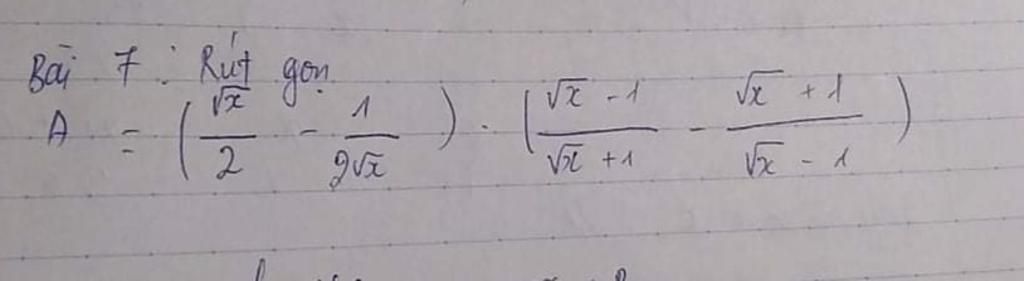 Bài 7 : Rút gọn
A = ( √x / 2 - 1 / 2√x ) . ( √x - 1 / √x + 1 - √x + 1 / √x - 1 )